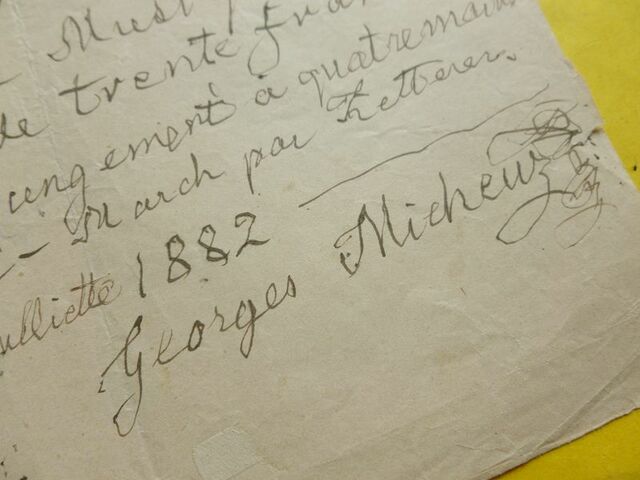 Must
de trente fran
ungement à quatremains
– March par Ketterer.
ulliette 1882
Georges Micheuz